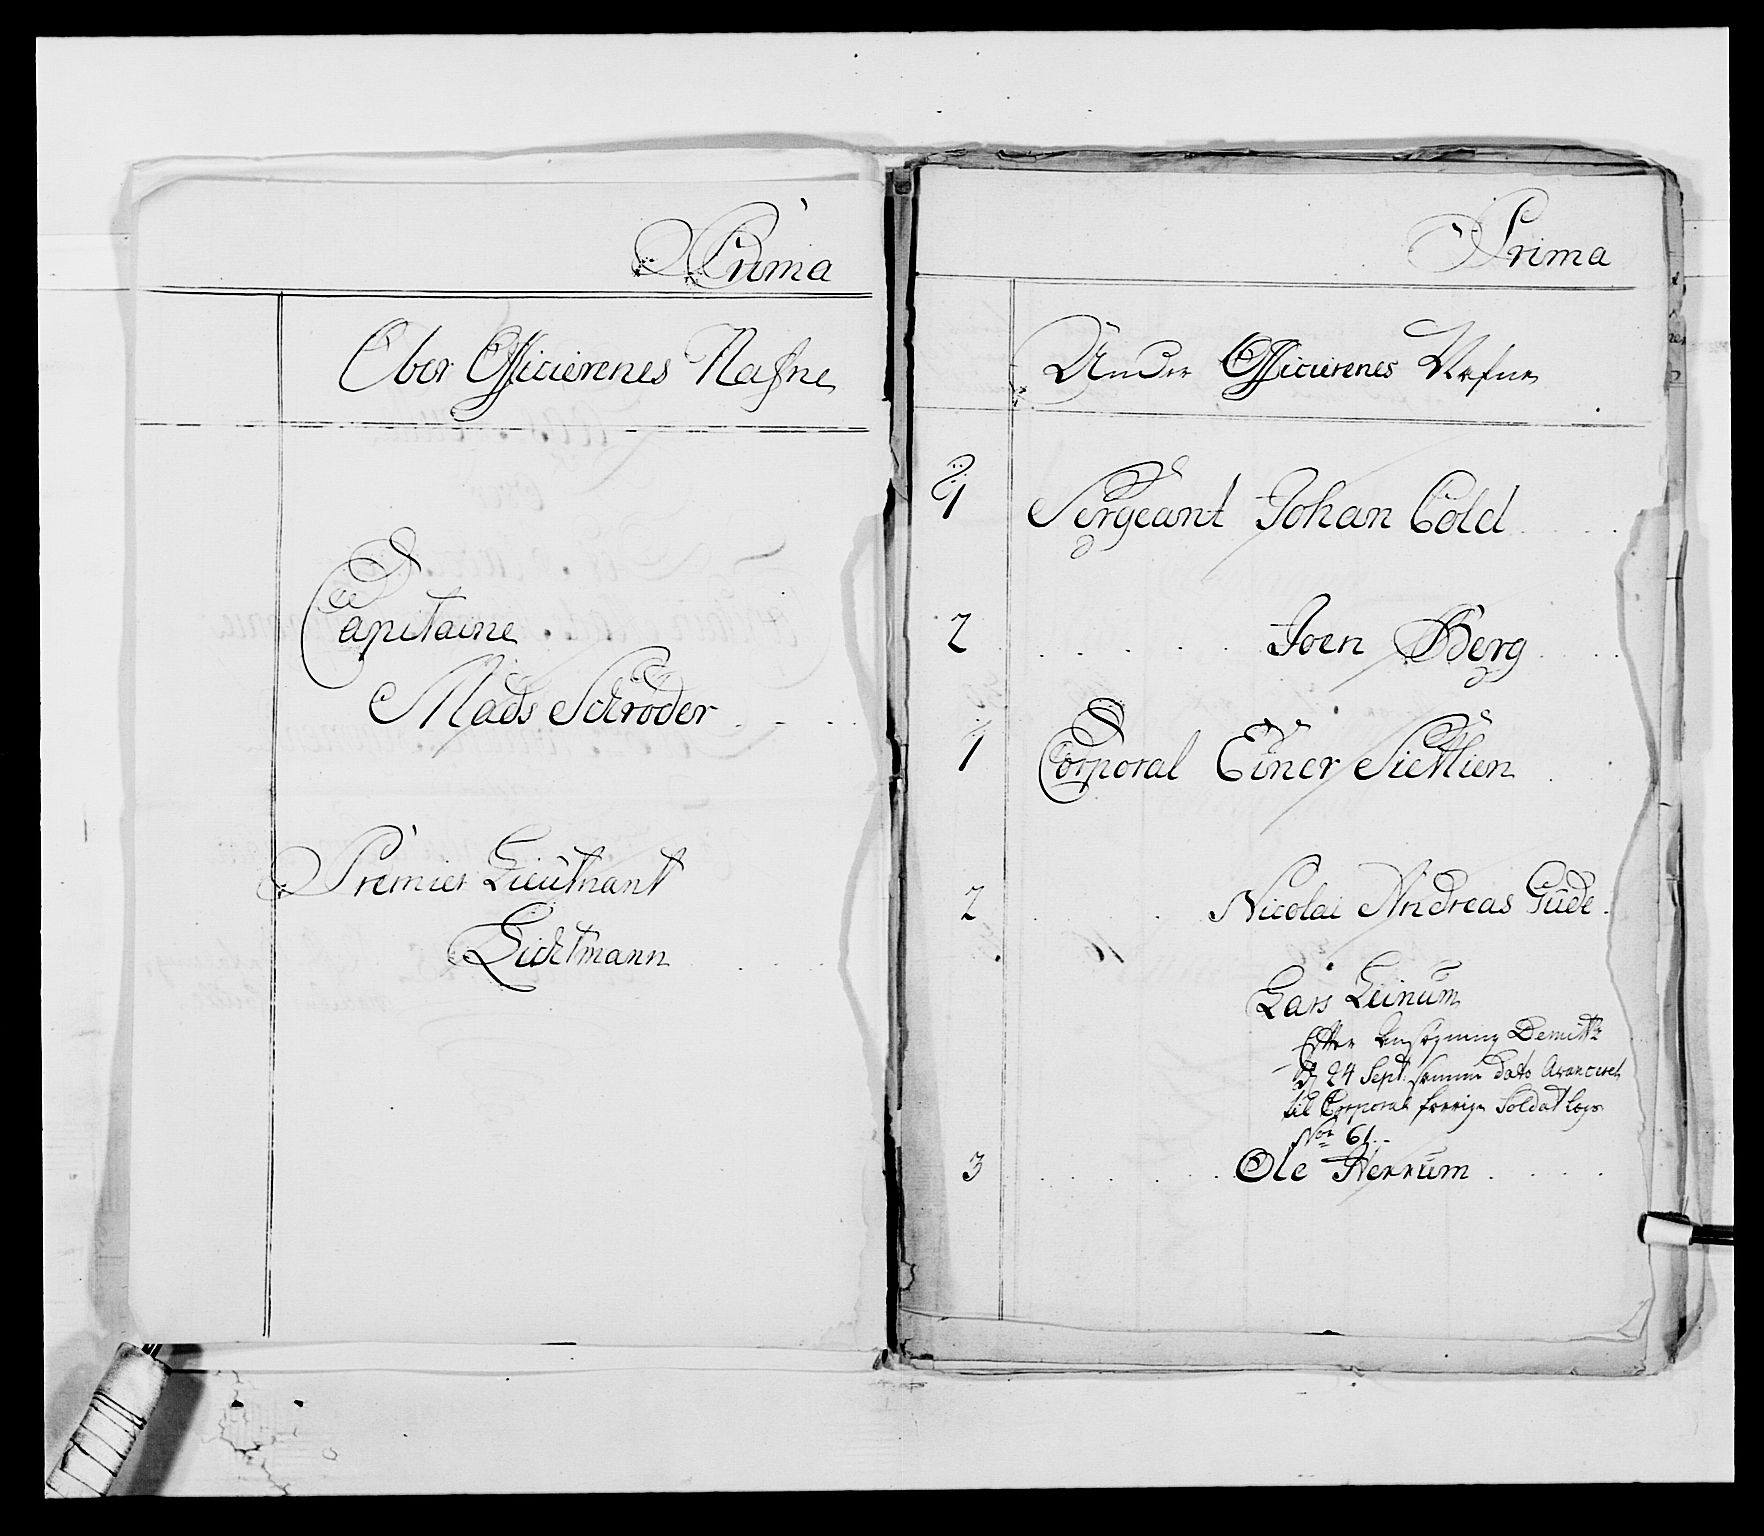 Prima
Ober Officierenes Nafne
Capitaine
Mads Schrøder
Premier Lieutnant
Lichtmann
Prima
Under Officierenes Nafne
1 Sergeant Johan Cold
2 Joen Berg
1 Corporal Einer Sictlien
2 Nicolai Andreas Gude
Lars Leinum
Efter Ansøgning Demitt:
d 24 Sept: samme dato Avanceret
til Corporal forrige Soldat Legs
No 61
3 Ole Herrum